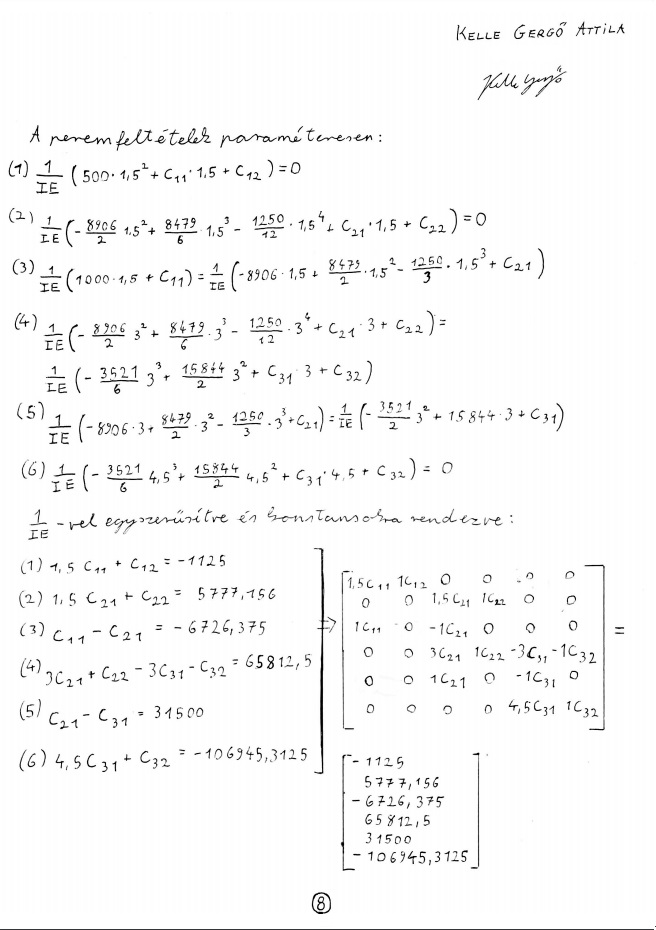 KELLE GERGŐ ATTILA
Kelle Gergő
A peremfeltételek paraméteresen:
(1) 1/IE (500·1,5² + C₁₁·1,5 + C₁₂) = 0
(2) 1/IE (-8906/2 1,5² + 8479/6·1,5³ - 1250/12·1,5⁴ + C₂₁·1,5 + C₂₂) = 0
(3) 1/IE (1000·1,5 + C₁₁) = 1/IE (-8906·1,5 + 8479/2·1,5² - 1250/3·1,5³ + C₂₁)
(4) 1/IE (-8906/2 3² + 8479/6·3³ - 1250/12·3⁴ + C₂₁·3 + C₂₂) =
1/IE (-3521/6 3³ + 15844/2 3² + C₃₁·3 + C₃₂)
(5) 1/IE (-8906·3 + 8479/2·3² - 1250/3·3³ + C₂₁) = 1/IE (-3521/2 3² + 15844·3 + C₃₁)
(6) 1/IE (-3521/6 4,5³ + 15844/2 4,5² + C₃₁·4,5 + C₃₂) = 0
1/IE -vel egyszerűsítve és konstansokra rendezve:
(1) 1,5 C₁₁ + C₁₂ = -1125
(2) 1,5 C₂₁ + C₂₂ = 5777,156
(3) C₁₁ - C₂₁ = -6726,375
(4) 3C₂₁ + C₂₂ - 3C₃₁ - C₃₂ = 65812,5
(5) C₂₁ - C₃₁ = 31500
(6) 4,5C₃₁ + C₃₂ = -106945,3125
⇒
1,5C₁₁ 1C₁₂ 0 0 0 0
0 0 1,5C₂₁ 1C₂₂ 0 0
1C₁₁ 0 -1C₂₁ 0 0 0
0 0 3C₂₁ 1C₂₂ -3C₃₁ -1C₃₂
0 0 1C₂₁ 0 -1C₃₁ 0
0 0 0 0 4,5C₃₁ 1C₃₂
=
-1125
5777,156
-6726,375
65812,5
31500
-106945,3125
8